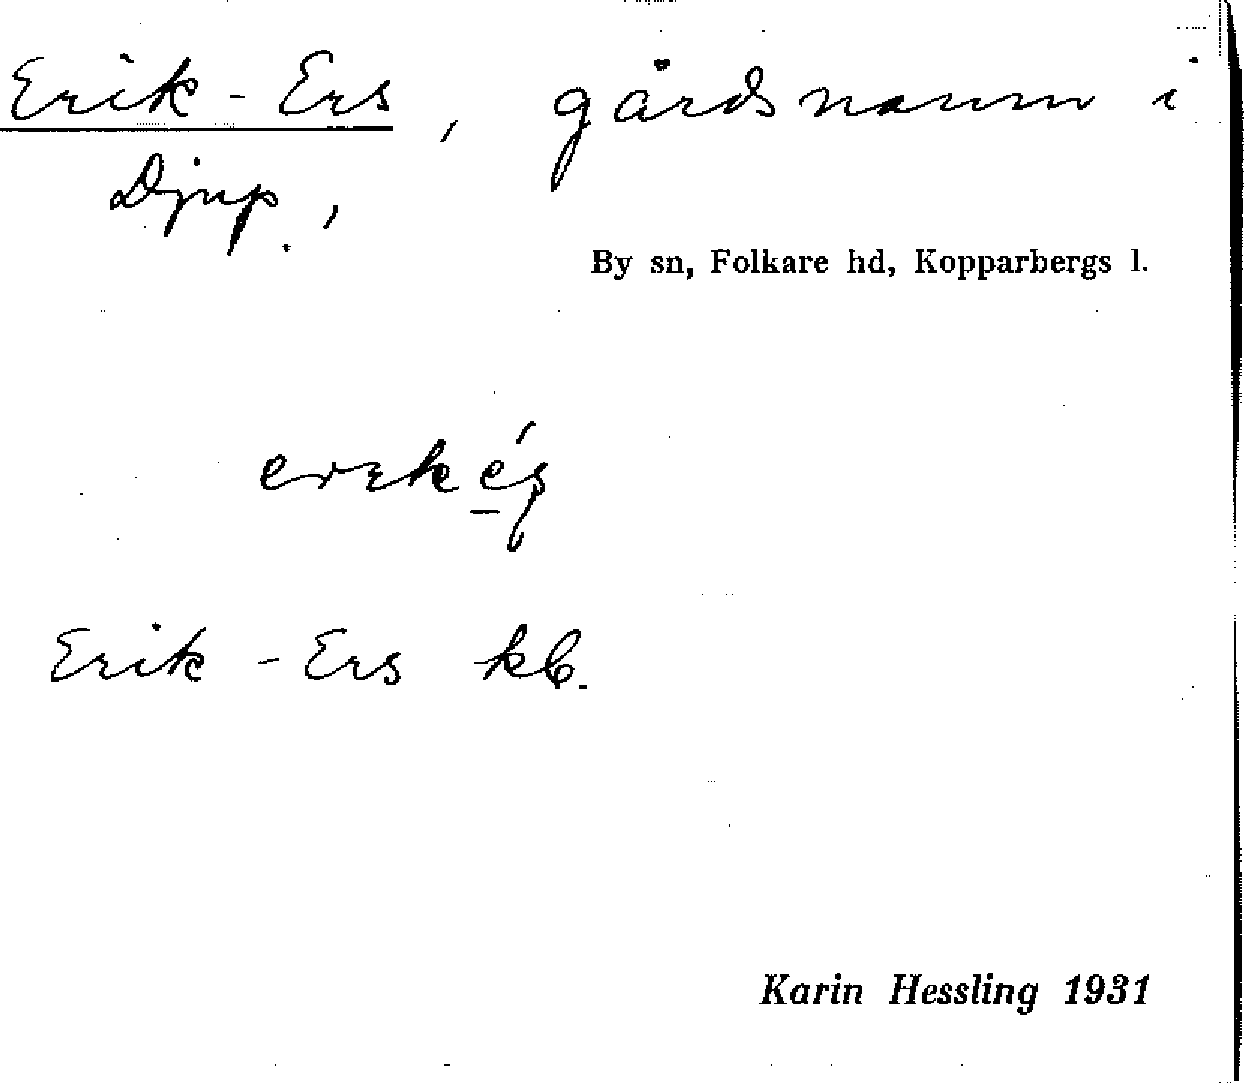 Erik-Ers, gårdsnamn i
Djup.,
By sn, Folkare hd, Kopparbergs l.
Erik-Ers kb.
Karin Hessling 1931